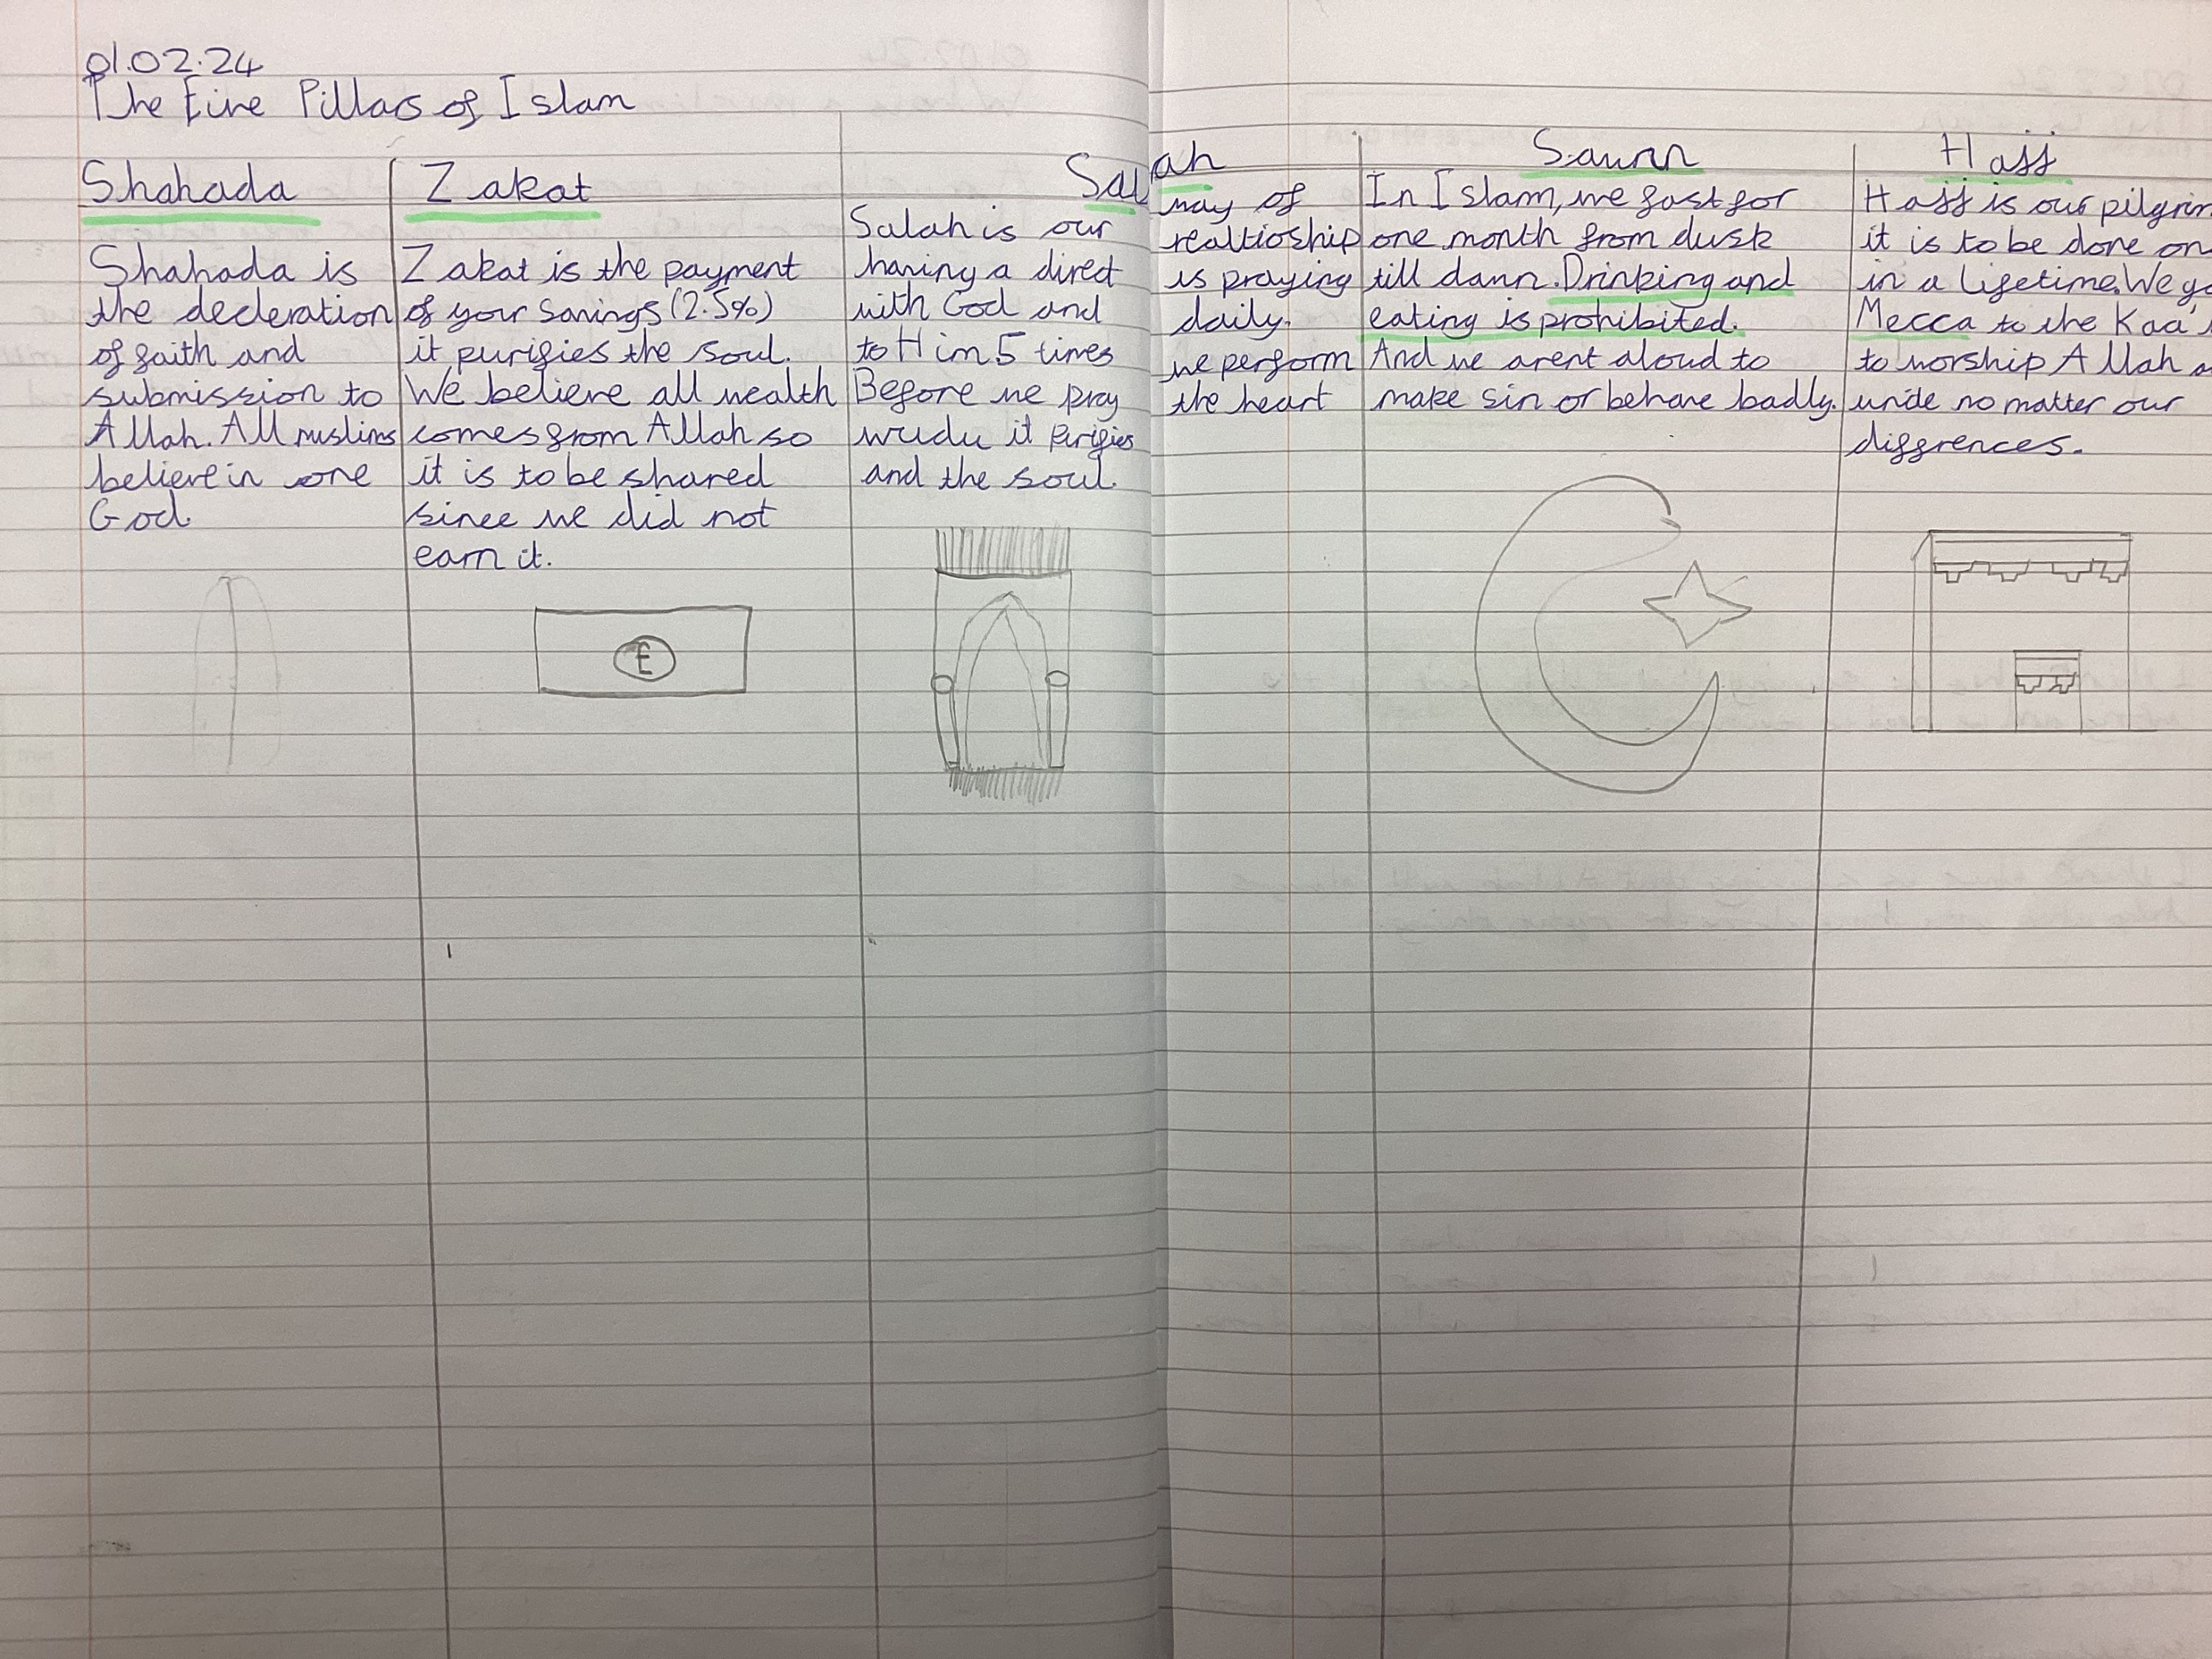 01.02.24
The Five Pillars of Islam
Shahada
Shahada is
the decleration
of faith and
submission to
Allah. All muslims
believe in one
God.
Zakat
Zakat is the payment
of your savings (2.5%)
it purifies the soul.
We believe all wealth
comes from Allah so
it is to be shared
since we did not
earn it.
£
Salah
Salah is our way of
having a direct realtioship
with God and is praying
to Him 5 times daily.
Before we pray we perform
wudu it purifies the heart
and the soul.
Sawm
In Islam, we fast for
one month from dusk
till dawn. Drinking and
eating is prohibited.
And we arent aloud to
make sin or behave badly.
Hajj
Hajj is our pilgrim
it is to be done on
in a lifetime. We go
Mecca to the Kaa'
to worship Allah
unite no matter our
diffrences.